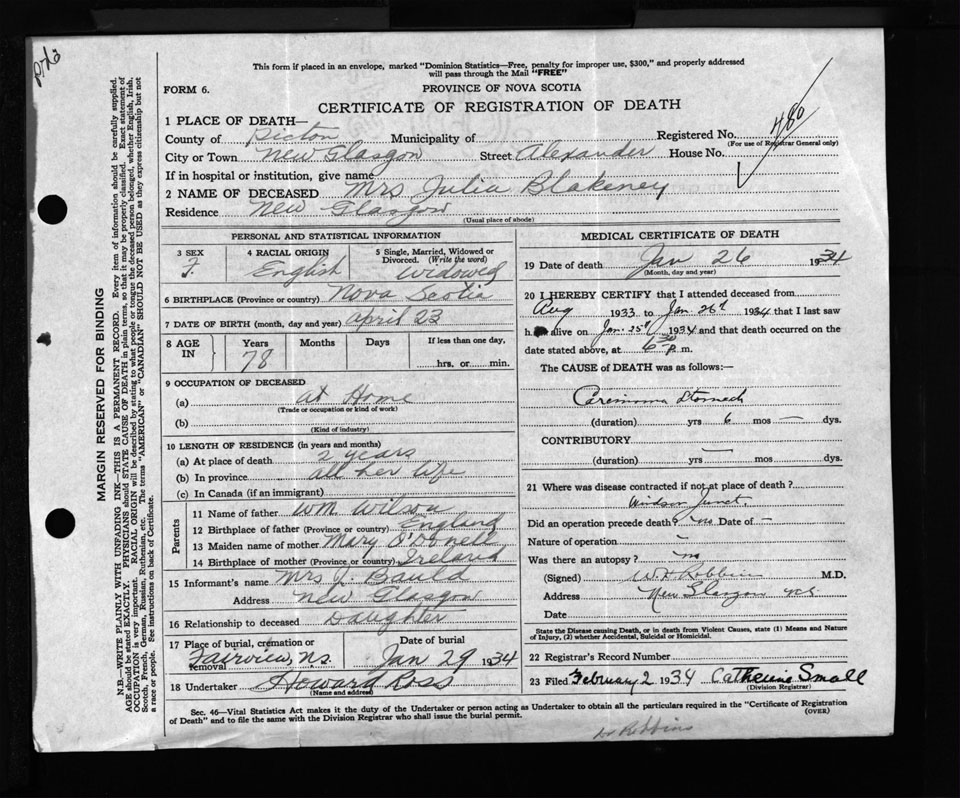 This form if placed in an envelope, marked "Dominion Statistics—Free, penalty for improper use, $300," and properly addressed
will pass through the Mail "FREE"
FORM 6.
PROVINCE OF NOVA SCOTIA
CERTIFICATE OF REGISTRATION OF DEATH
480
1 PLACE OF DEATH—
County of Pictou Municipality of Registered No.
(For use of Registrar General only)
City or Town New Glasgow Street Alexander House No.
If in hospital or institution, give name
2 NAME OF DECEASED Mrs Julia Blakeney
Residence New Glasgow
(Usual place of abode)
PERSONAL AND STATISTICAL INFORMATION
3 SEX 4 RACIAL ORIGIN 5 Single, Married, Widowed or
Divorced. (Write the word)
F. English Widowed
6 BIRTHPLACE (Province or country) Nova Scotia
7 DATE OF BIRTH (month, day and year) April 23
8 AGE IN Years Months Days If less than one day,
78 hrs, or min.
9 OCCUPATION OF DECEASED
(a) At Home
(Trade or occupation or kind of work)
(b)
(Kind of industry)
10 LENGTH OF RESIDENCE (in years and months)
(a) At place of death 2 years
(b) In province all her life
(c) In Canada (if an immigrant)
Parents
11 Name of father Wm. Wilson
12 Birthplace of father (Province or country) England
13 Maiden name of mother Mary O'Donell
14 Birthplace of mother (Province or country) Ireland
15 Informant's name Mrs J. Bauld
Address New Glasgow
16 Relationship to deceased Daughter
17 Place of burial, cremation or
removal Fairview, N.S. Date of burial
Jan 29 1934
18 Undertaker Howard Ross
(Name and address)
MEDICAL CERTIFICATE OF DEATH
19 Date of death Jan 26 1934
(Month, day and year)
20 I HEREBY CERTIFY that I attended deceased from
Aug 1933 to Jan. 26th 1934 that I last saw
h alive on Jan. 25th 1934 and that death occurred on
date stated above, at 6 30 p.m.
The CAUSE of DEATH was as follows:—
Carcinoma Stomach
(duration) yrs 6 mos — dys.
CONTRIBUTORY
(duration) yrs — mos dys.
21 Where was disease contracted if not at place of death?
Windsor Junct.
Did an operation precede death? no Date of —
Nature of operation —
Was there an autopsy? no
(Signed) W.H. Robbins M.D.
Address New Glasgow N.S.
Date
State the Disease causing Death, or in death from Violent Causes, state (1) Means and Nature
of Injury, (2) whether Accidental, Suicidal or Homicidal.
22 Registrar's Record Number
23 Filed February 2 1934 Catherine Small
(Division Registrar)
Sec. 46—Vital Statistics Act makes it the duty of the Undertaker or person acting as Undertaker to obtain all the particulars required in the "Certificate of Registration
of Death" and to file the same with the Division Registrar who shall issue the burial permit.
(OVER)
Dr Robbins
MARGIN RESERVED FOR BINDING
N.B.—WRITE PLAINLY WITH UNFADING INK—THIS IS A PERMANENT RECORD. Every item of information should be carefully supplied.
AGE should be stated EXACTLY. PHYSICIANS should STATE CAUSE OF DEATH in plain terms, so that it may be properly classified. Exact statement of
OCCUPATION is very important. RACIAL ORIGIN will be described by stating to what people or tongue the deceased person belonged, whether English, Irish,
Scotch, French, German, Russian, Ruthenian, etc. The terms "AMERICAN" or "CANADIAN" SHOULD NOT BE USED as they express citizenship but not
a race or people. See instructions on back of Certificate.